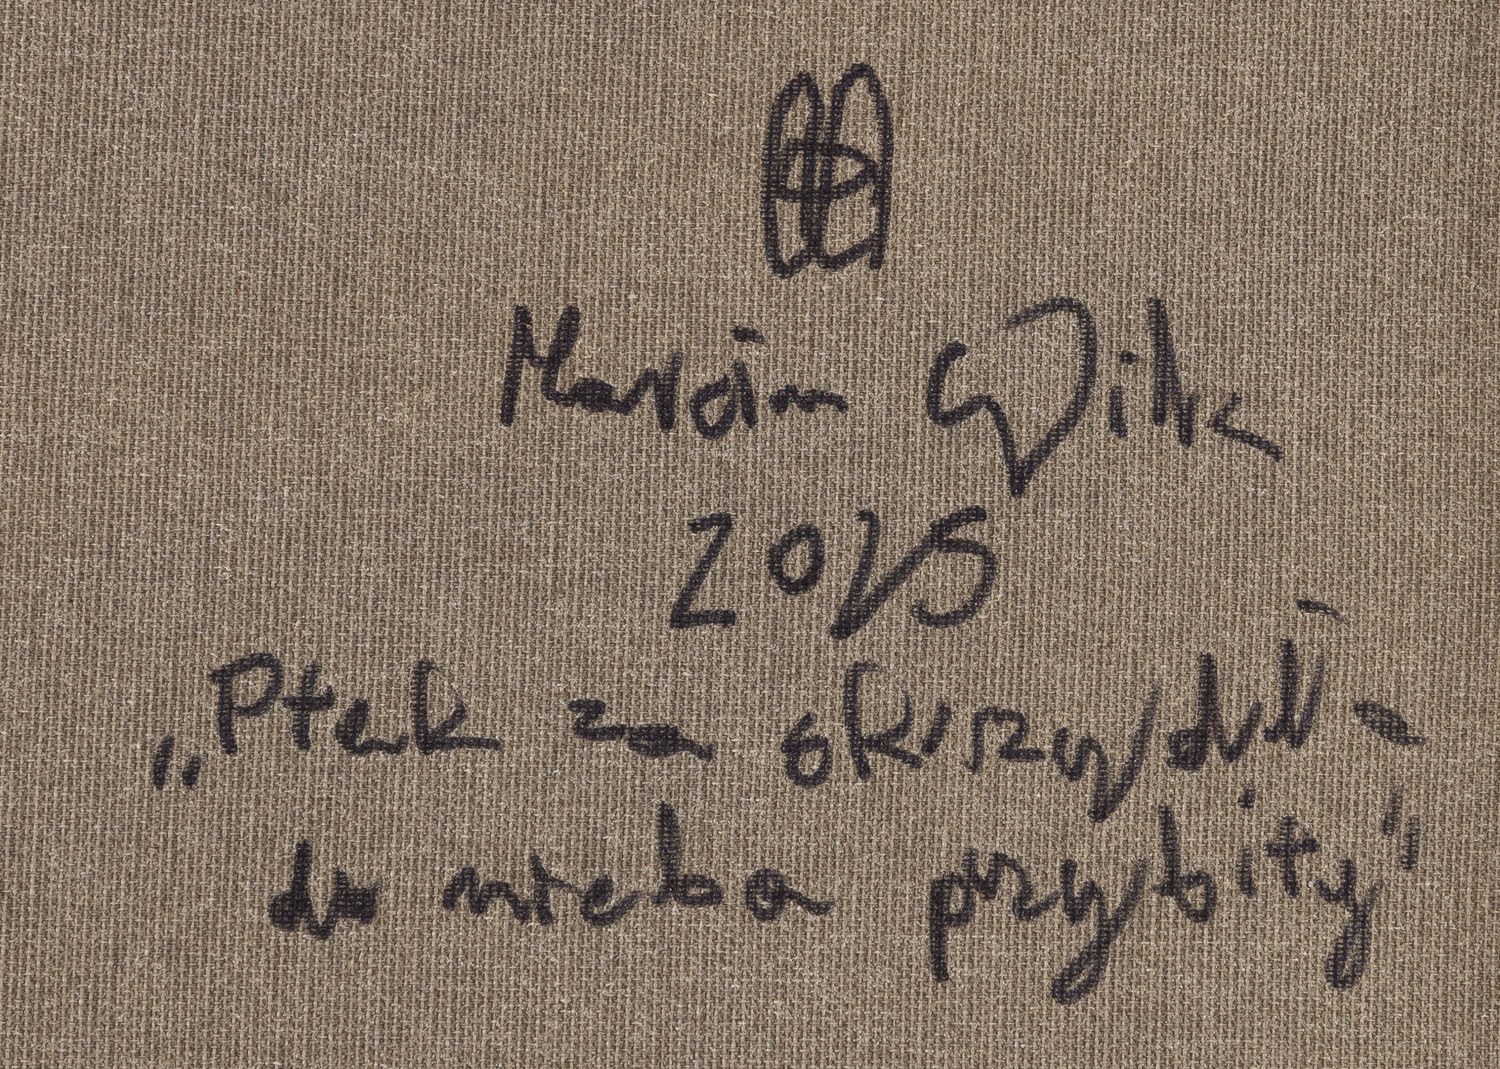 Marcin Wilk
2025
„Ptak za skrzydła
do nieba przybity"